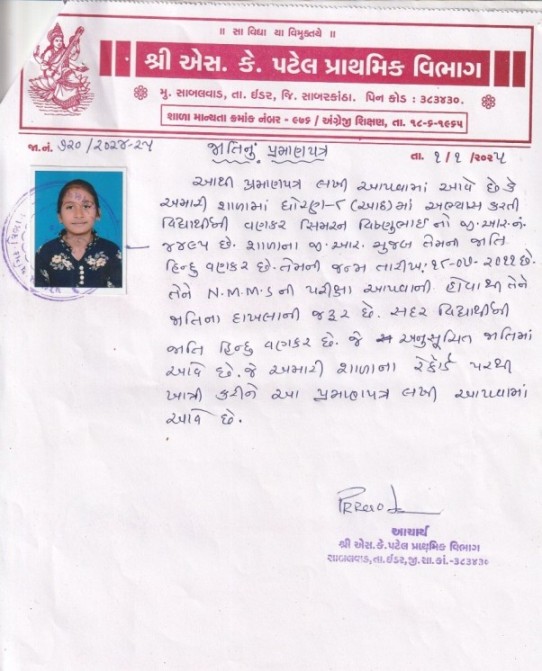 ॥ સા વિદ્યા યા વિમુક્તયે ॥
શ્રી એસ. કે. પટેલ પ્રાથમિક વિભાગ
મુ. સાબલવાડ, તા. ઈડર, જિ. સાબરકાંઠા. પિન કોડ : ૩૮૩૪૩૦.
શાળા માન્યતા ક્રમાંક નંબર - ૯૭૬ / અંગ્રેજી શિક્ષણ, તા. ૧૮-૬-૧૯૬૫
જા.નં. ૭૨૦ / ૨૦૨૪-૨૫
જાતિનું પ્રમાણપત્ર
તા. ૧ / ૧ / ૨૦૨૫
આથી પ્રમાણપત્ર લખી આપવામાં આવે છે કે
અમારી શાળામાં ધોરણ-૮ (આઠ) માં અભ્યાસ કરતી
વિદ્યાર્થીની વણકર સિમરન વિષ્ણુભાઈ નો જી.આર.નં.
૪૪૯૫ છે. શાળાના જી.આર. મુજબ તેમની જાતિ
હિન્દુ વણકર છે. તેમની જન્મ તારીખ: ૧૮-૦૭-૨૦૧૧ છે.
તેને N.M.M.S ની પરીક્ષા આપવાની હોવાથી તેને
જાતિના દાખલાની જરૂર છે. સદર વિદ્યાર્થીની
જાતિ હિન્દુ વણકર છે. જે અનુસૂચિત જાતિમાં
આવે છે. જે અમારી શાળાના રેકોર્ડ પરથી
ખાત્રી કરીને આ પ્રમાણપત્ર લખી આપવામાં
આવે છે.
આચાર્ય
શ્રી એસ.કે.પટેલ પ્રાથમિક વિભાગ
સાબલવાડ,તા.ઈડર,જી.સા.કાં.-૩૮૩૪૩૦